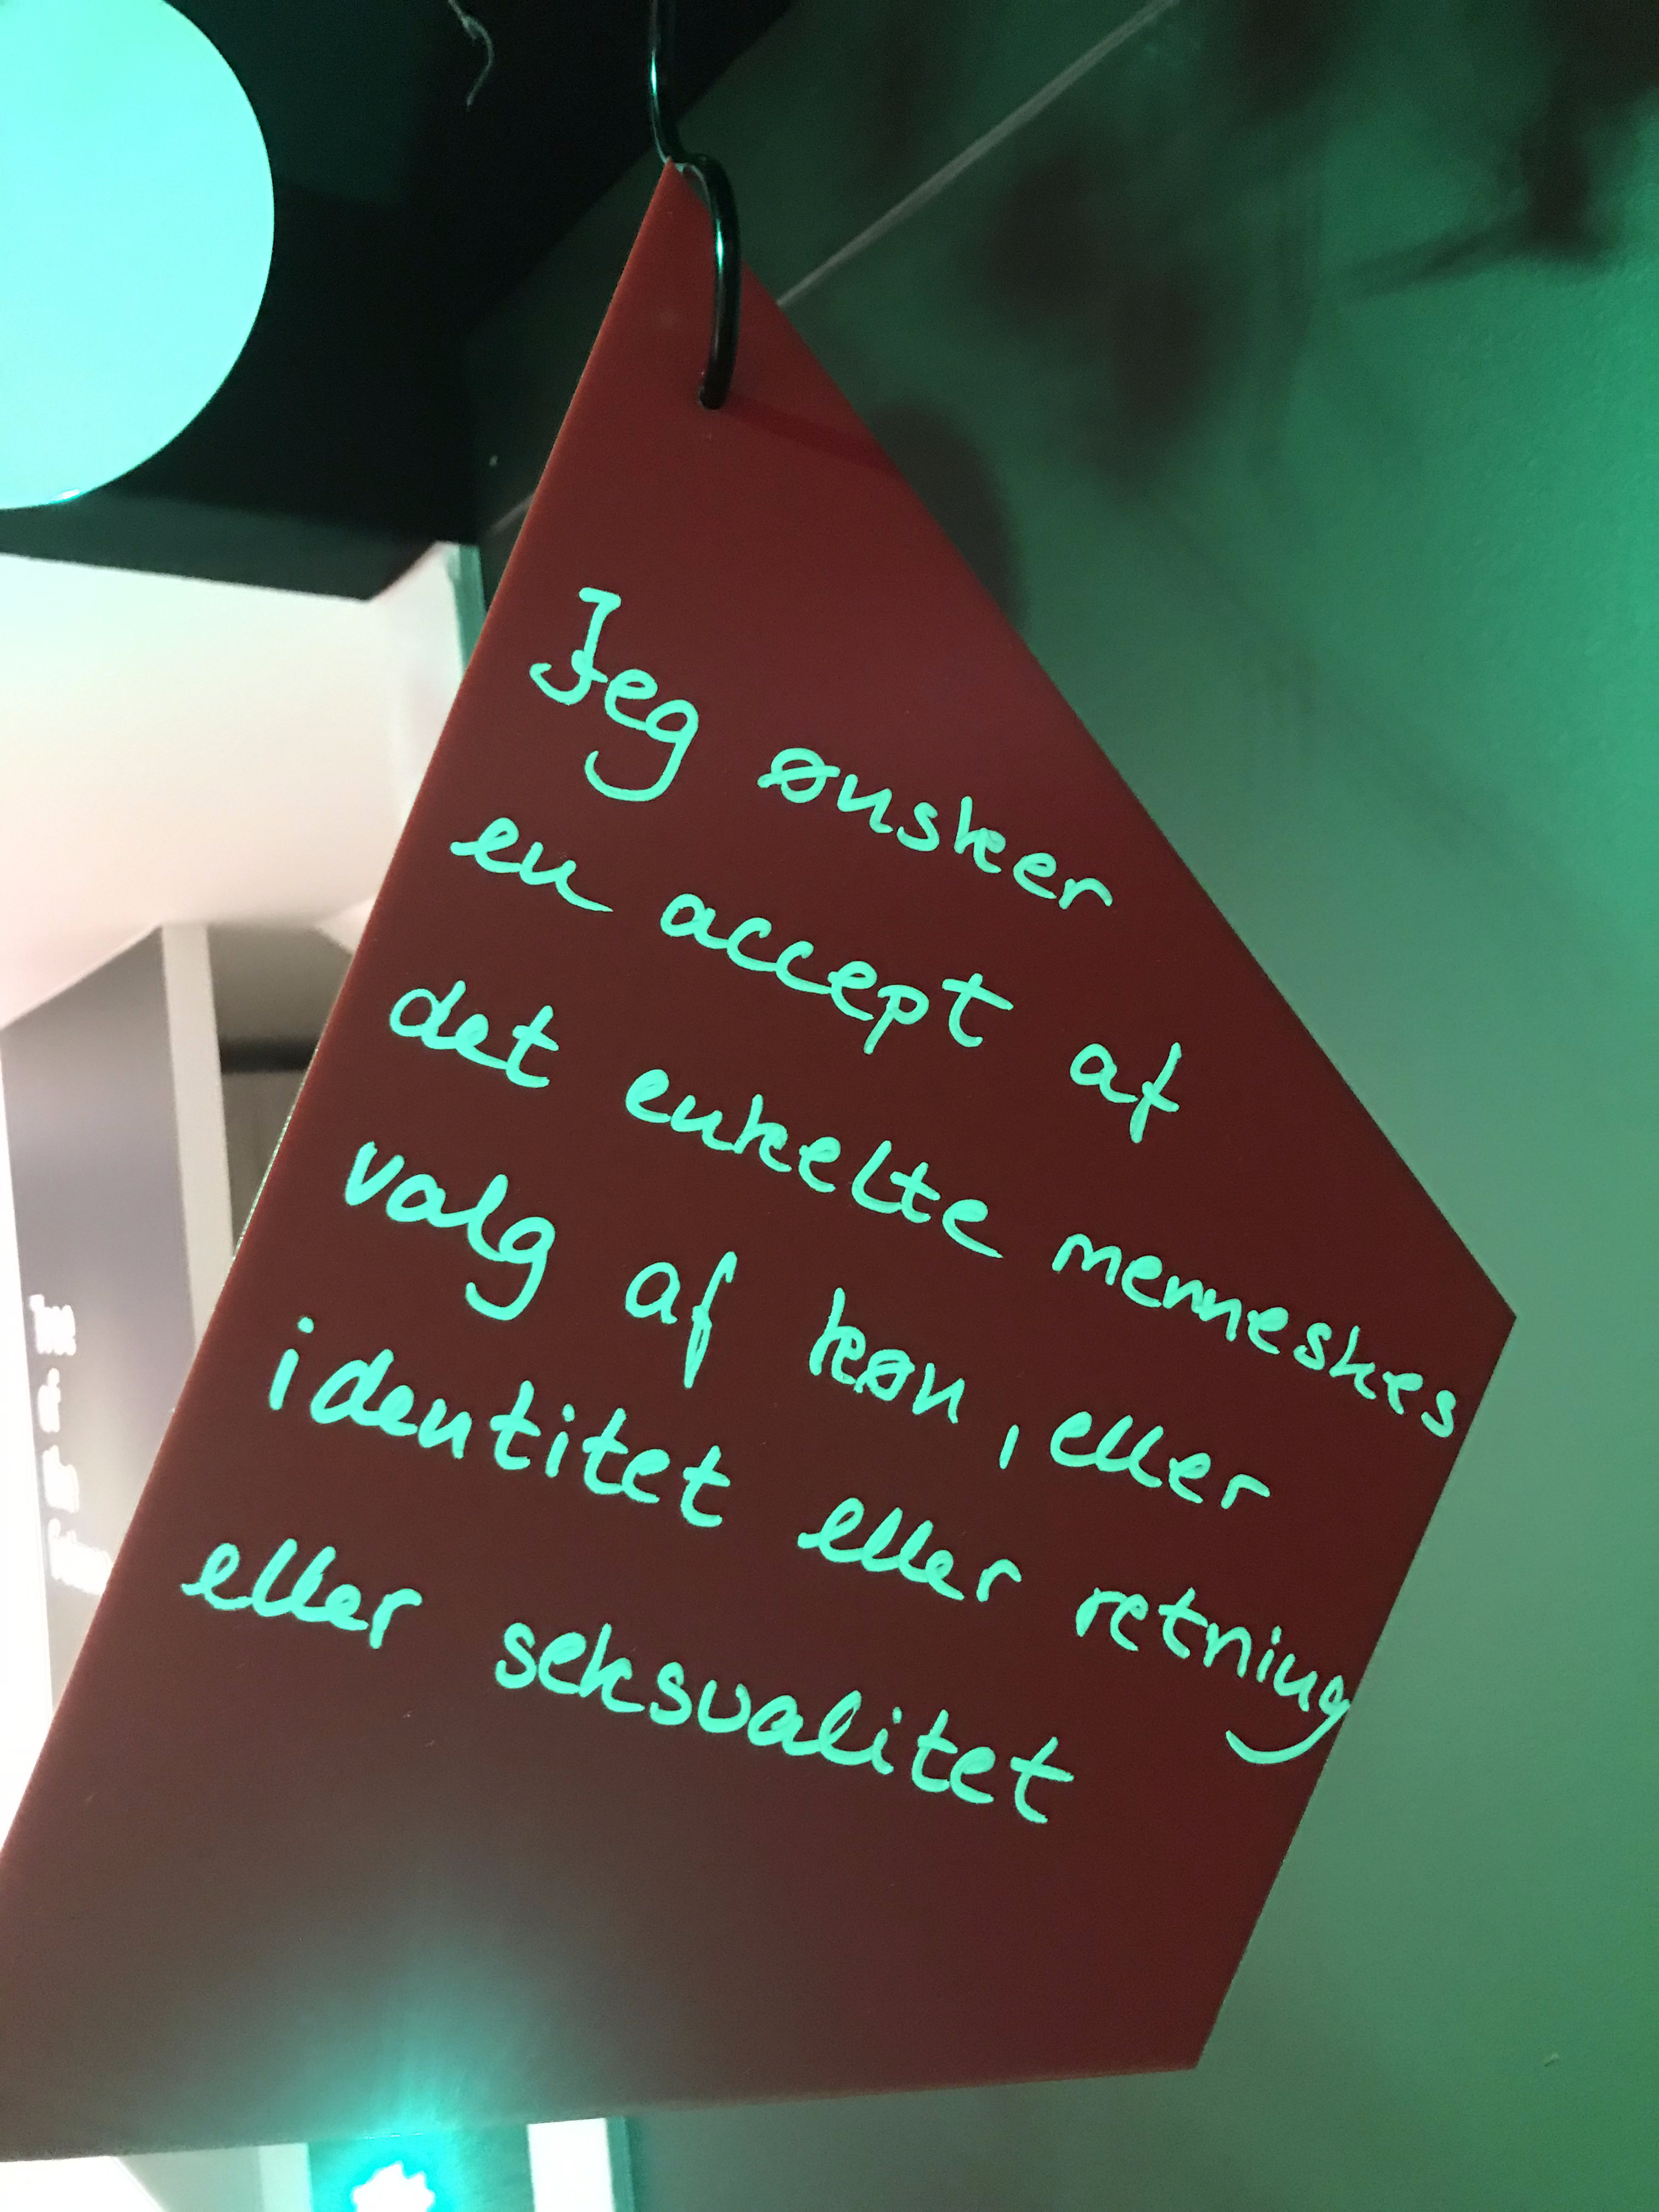 Jeg ønsker
en accept af
det enkelte menneskes
valg af køn, eller
identitet eller retning
eller seksualitet